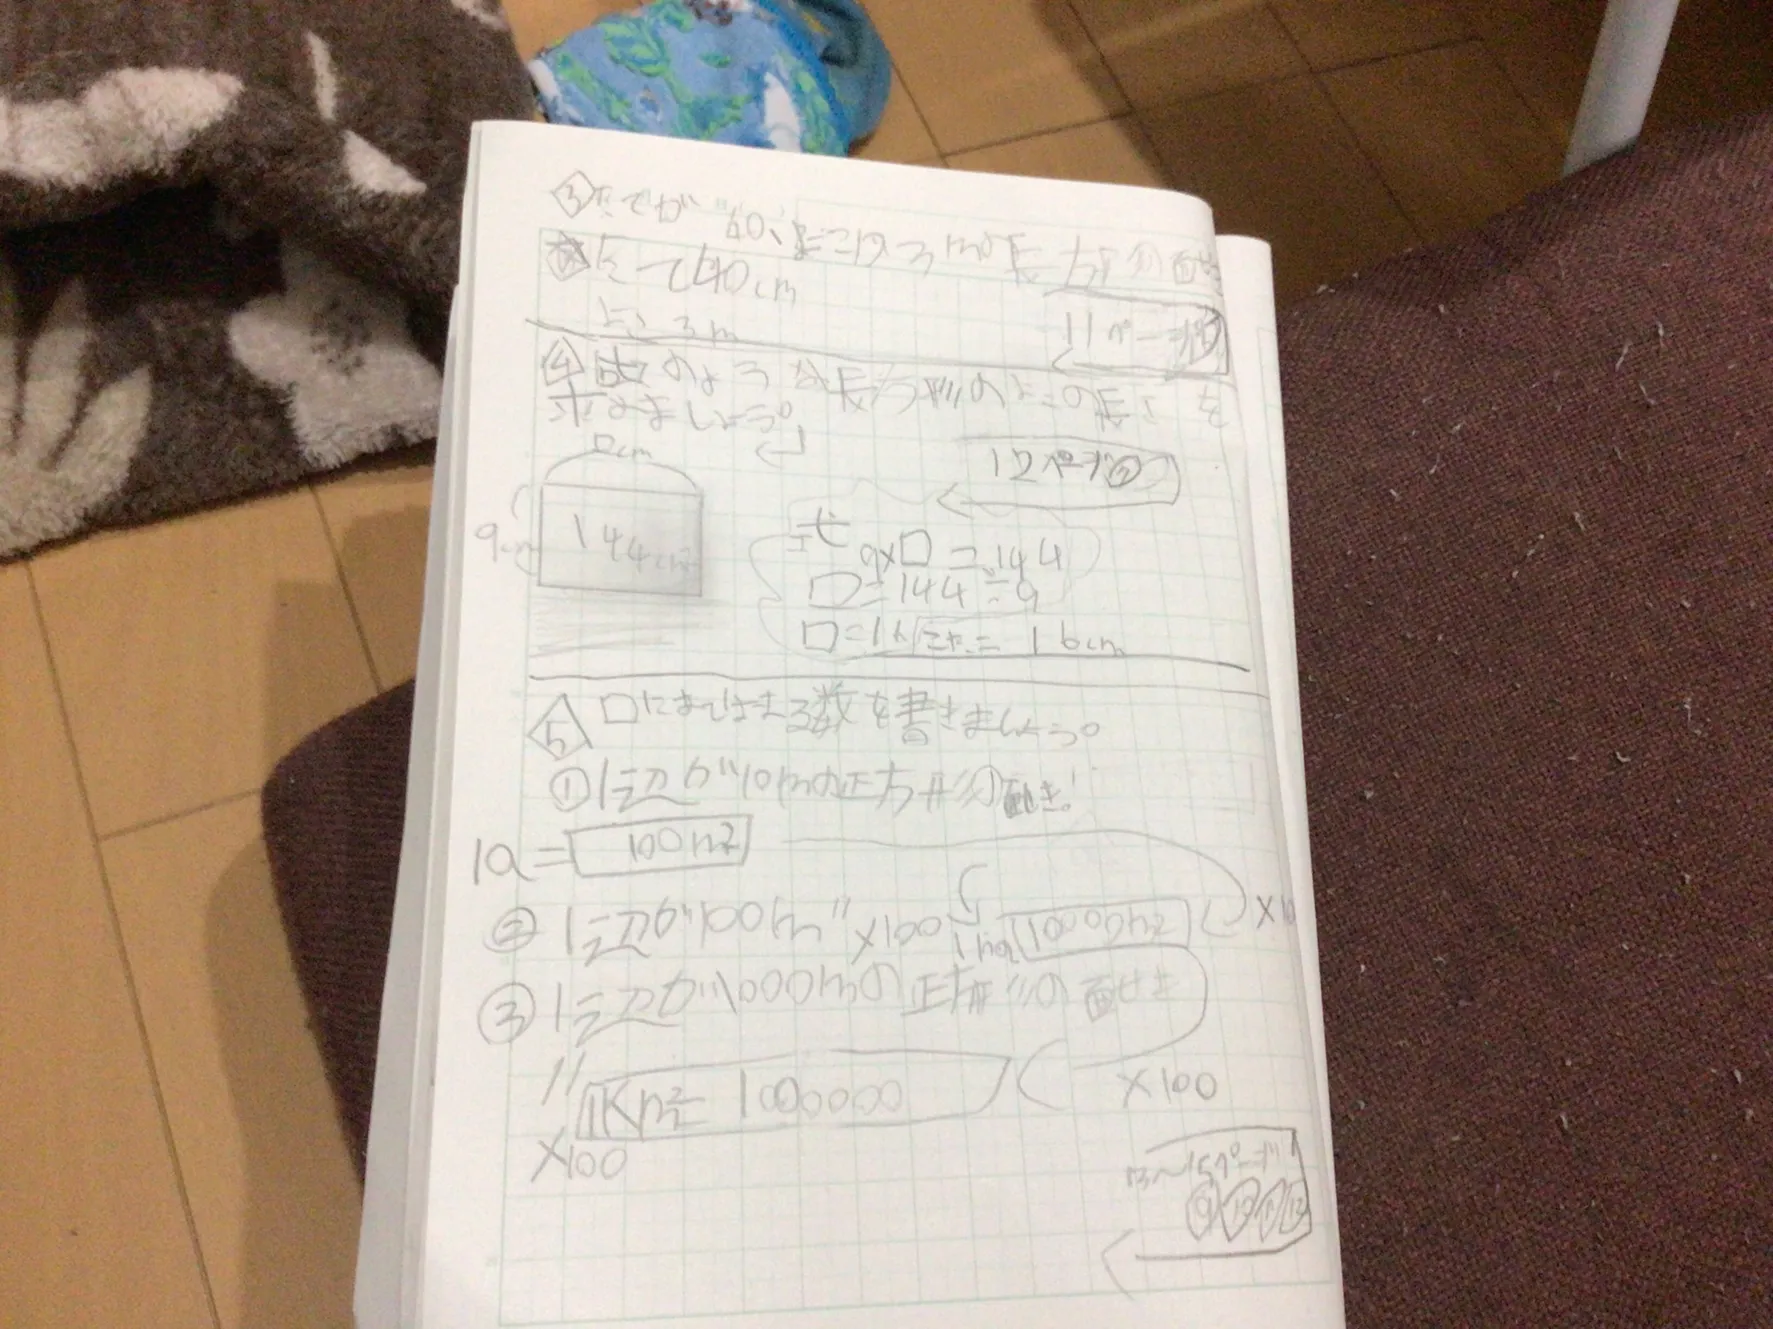 ③たてが40、よこは3mの長方形の面せき
たて40cm
よこ3m
11ページ
④図のような長方形のよこの長さを
求めましょう。
□cm
12ページ
9cm
144cm²
式
9×□=144
□=144÷9
□=16 答え= 16cm
5 □にあてはまる数を書きましょう。
①1辺が10mの正方形の面せき
1a= 100m²
② 1辺が100m〃 ×100 1ha 10000m² ×10
③ 1辺が1000mの正方形の面せき
〃 1Km²= 1000000
×100
×100
13〜15ページ
⑨⑩⑪⑫